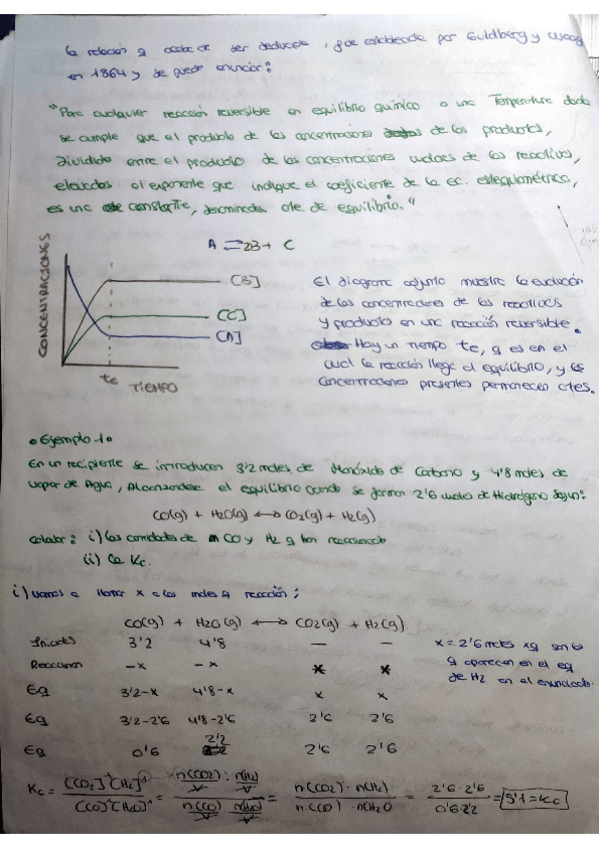 la relación q acaba de ser deducida, fue establecida por Guldberg y Waag
en 1864 y se puede enunciar:
"Para cualquier reacción reversible en equilibrio químico a una Temperatura dada
se cumple que el producto de las concentraciones de los productos,
Dividido entre el producto de las concentraciones de los reactivos,
elevados al exponente que indique el coeficiente de la ec. estequiométrica,
es una constante, denominada cte de equilibrio."
A ⇌ 2B + C
CONCENTRACIONES
[B]
[C]
[A]
te
TIEMPO
El diagrama adjunto muestra la evolución
de las concentraciones de los reactivos
y productos en una reacción reversible.
Hay un tiempo te, q es en el
cual la reacción llega al equilibrio, y las
concentraciones presentes permanecen ctes.
• Ejemplo 1 •
En un recipiente se introducen 3'2 moles de Monóxido de Carbono y 4'8 moles de
vapor de Agua, Alcanzandose el equilibrio cuando se forman 2'6 moles de Hidrógeno según:
CO(g) + H2O(g) ⟷ CO2(g) + H2(g)
Calcular: i) las cantidades de CO y H2 q han reaccionado
(ii) la Kc.
i) Vamos a llamar x a los moles q reaccionan:
CO(g) + H2O(g) ⟷ CO2(g) + H2(g)
Iniciales 3'2 4'8 — —
Reaccionan -x -x x x
Eq 3'2-x 4'8-x x x
Eq 3'2-2'6 4'8-2'6 2'6 2'6
Eq 0'6 2'2 2'6 2'6
x = 2'6 moles xq son los
q aparecen en el eq
de H2 en el enunciado.
Kc = [CO2]^1 [H2]^1 / [CO]^1 [H2O]^1 = n(CO2)/V · n(H2)/V / n(CO)/V · n(H2O)/V = n(CO2) · n(H2) / n(CO) · n(H2O = 2'6 · 2'6 / 0'6 · 2'2 = 5'1 = Kc